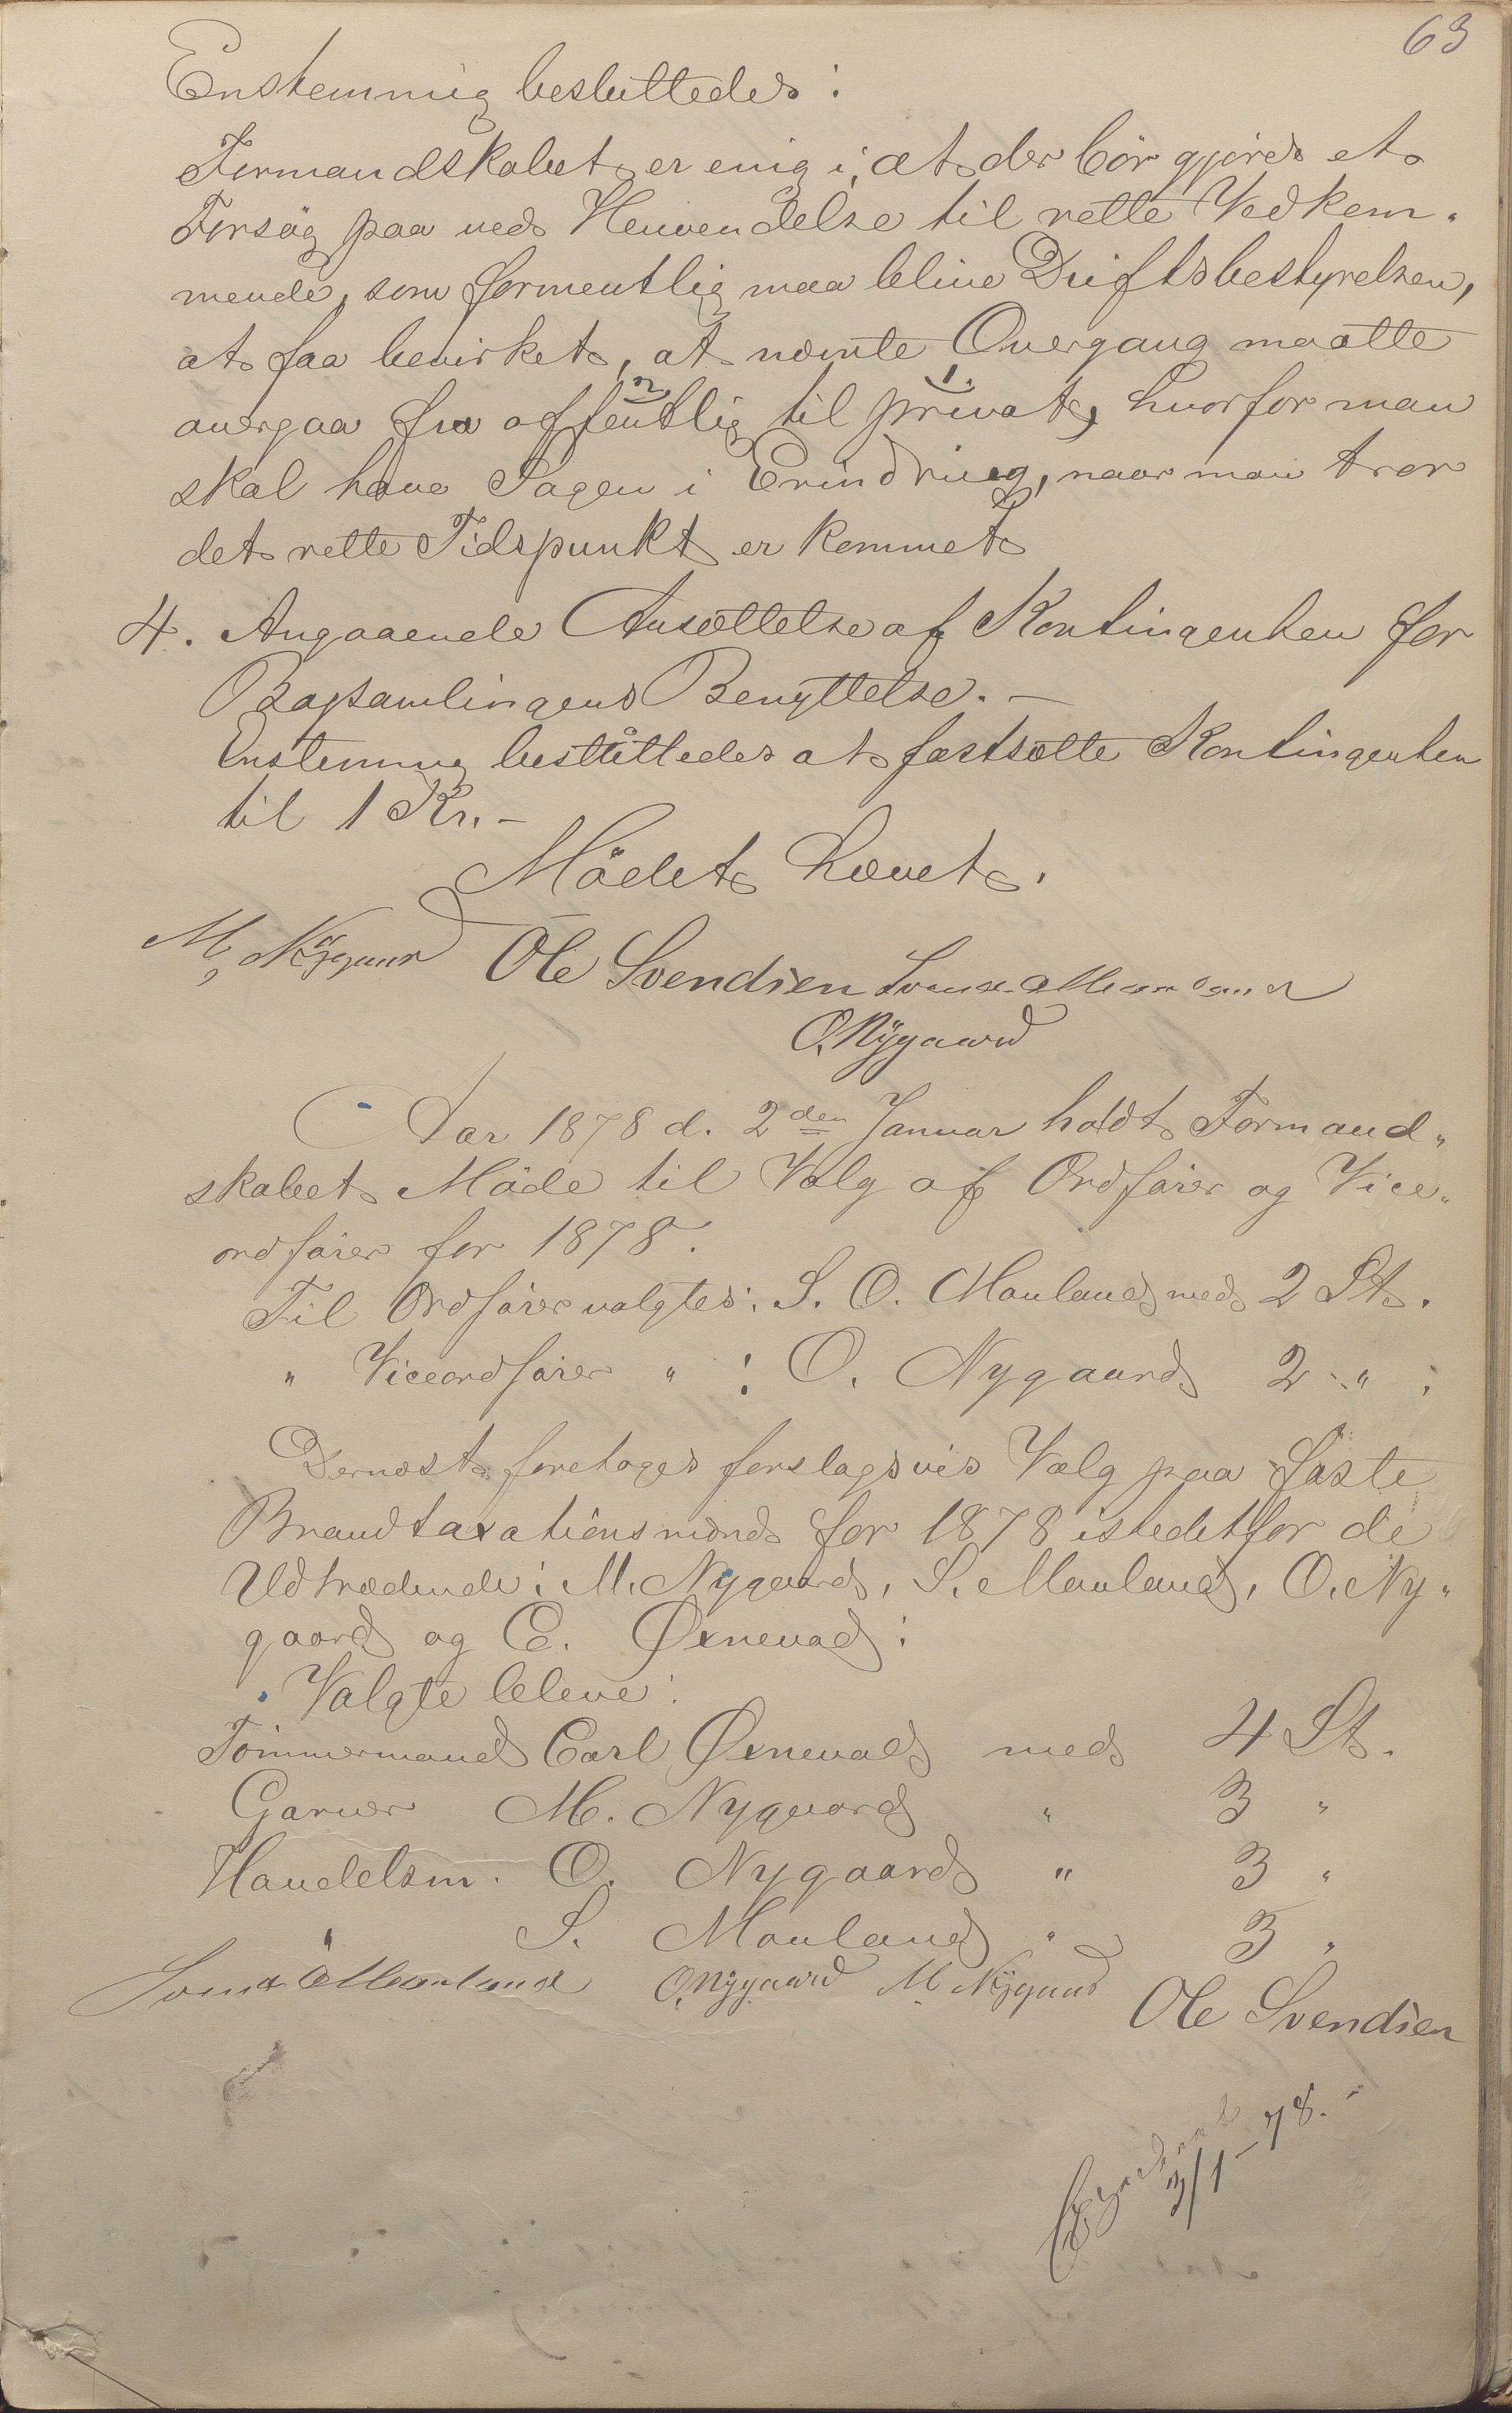 63
Enstemmig besluttedes:
Formandskabet er enig i, at der bör gjöres et
Forsög paa ved Henvendelse til rette Vedkom-
mende, som formentlig maa blive Driftsbestyrelsen,
at faa bevirket, at nævnte Overgang maatte
overgaa fra offentlig til privat, hvorfor man
skal have Sagen i Erindring, naar man tror
det rette Tidspunkt er kommet
4. Angaaende Ansættelse af Kontingenten for
Bogsamlingens Benyttelse. —
Enstemmig besluttedes at fastsætte Kontingenten
til 1 Kr. –
Mödet hævet.
M Nygaard Ole Svendsen Svend O Mauland
O. Nygaard
Aar 1878 d. 2den Januar holdt Formand-
skabet Möde til Valg af Ordförer og Vice-
ordförer for 1878.
Til Ordförer valgtes: S. O. Mauland med 2 St.
" Viceordförer " : O. Nygaard 2 " .
Dernæst foretoges forslagsvis Valg paa faste
Brandtaxationsmænd for 1878 istedetfor de
Udtrædende: M. Nygaard, S. Mauland, O. Ny-
gaard og C. Øxnevad:
Valgte bleve:
Tömmermand Carl Øxnevad med 4 St.
Garver M. Nygaard " 3 "
Handelsm. O. Nygaard " 3 "
" S. Mauland " 3 "
Svend O Mauland O. Nygaard M Nygaard Ole Svendsen
3/1-78.